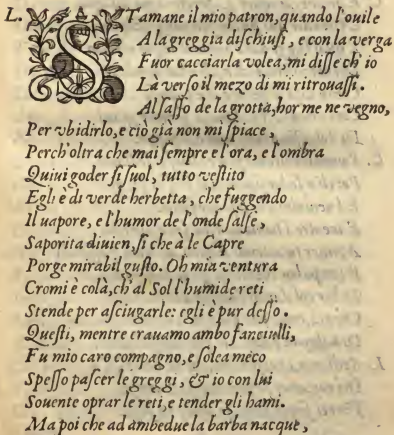 L. STamane il mio patron, quando l'ouile
A la greggia diſchiuſi, e con la verga
Fuor cacciarla volea, mi diſſe ch'io
Là verſo il mezo dì mi ritrouaſſi.
Al ſaſſo de la grotta, hor me ne vegno,
Per vbidirlo, e ciò già non mi ſpiace,
Perch'oltra che mai ſempre e l'ora, e l'ombra
Quiui goder ſi ſuol, tutto veſtito
Egli è di verde herbetta, che fuggendo
Il uapore, e l'humor de l'onde ſalſe,
Saporita diuien, ſi che à le Capre
Porge mirabil guſto. Oh mia ventura
Cromi è colà, ch'al Sol l'humide reti
Stende per aſciugarle: egli è pur deſſo.
Queſti, mentre erauamo ambo fanciulli,
Fu mio caro compagno, e ſolea meco
Speſſo paſcer le greggi, & io con lui
Souente oprar le reti, e tender gli hami.
Ma poi che ad ambedue la barba nacque,